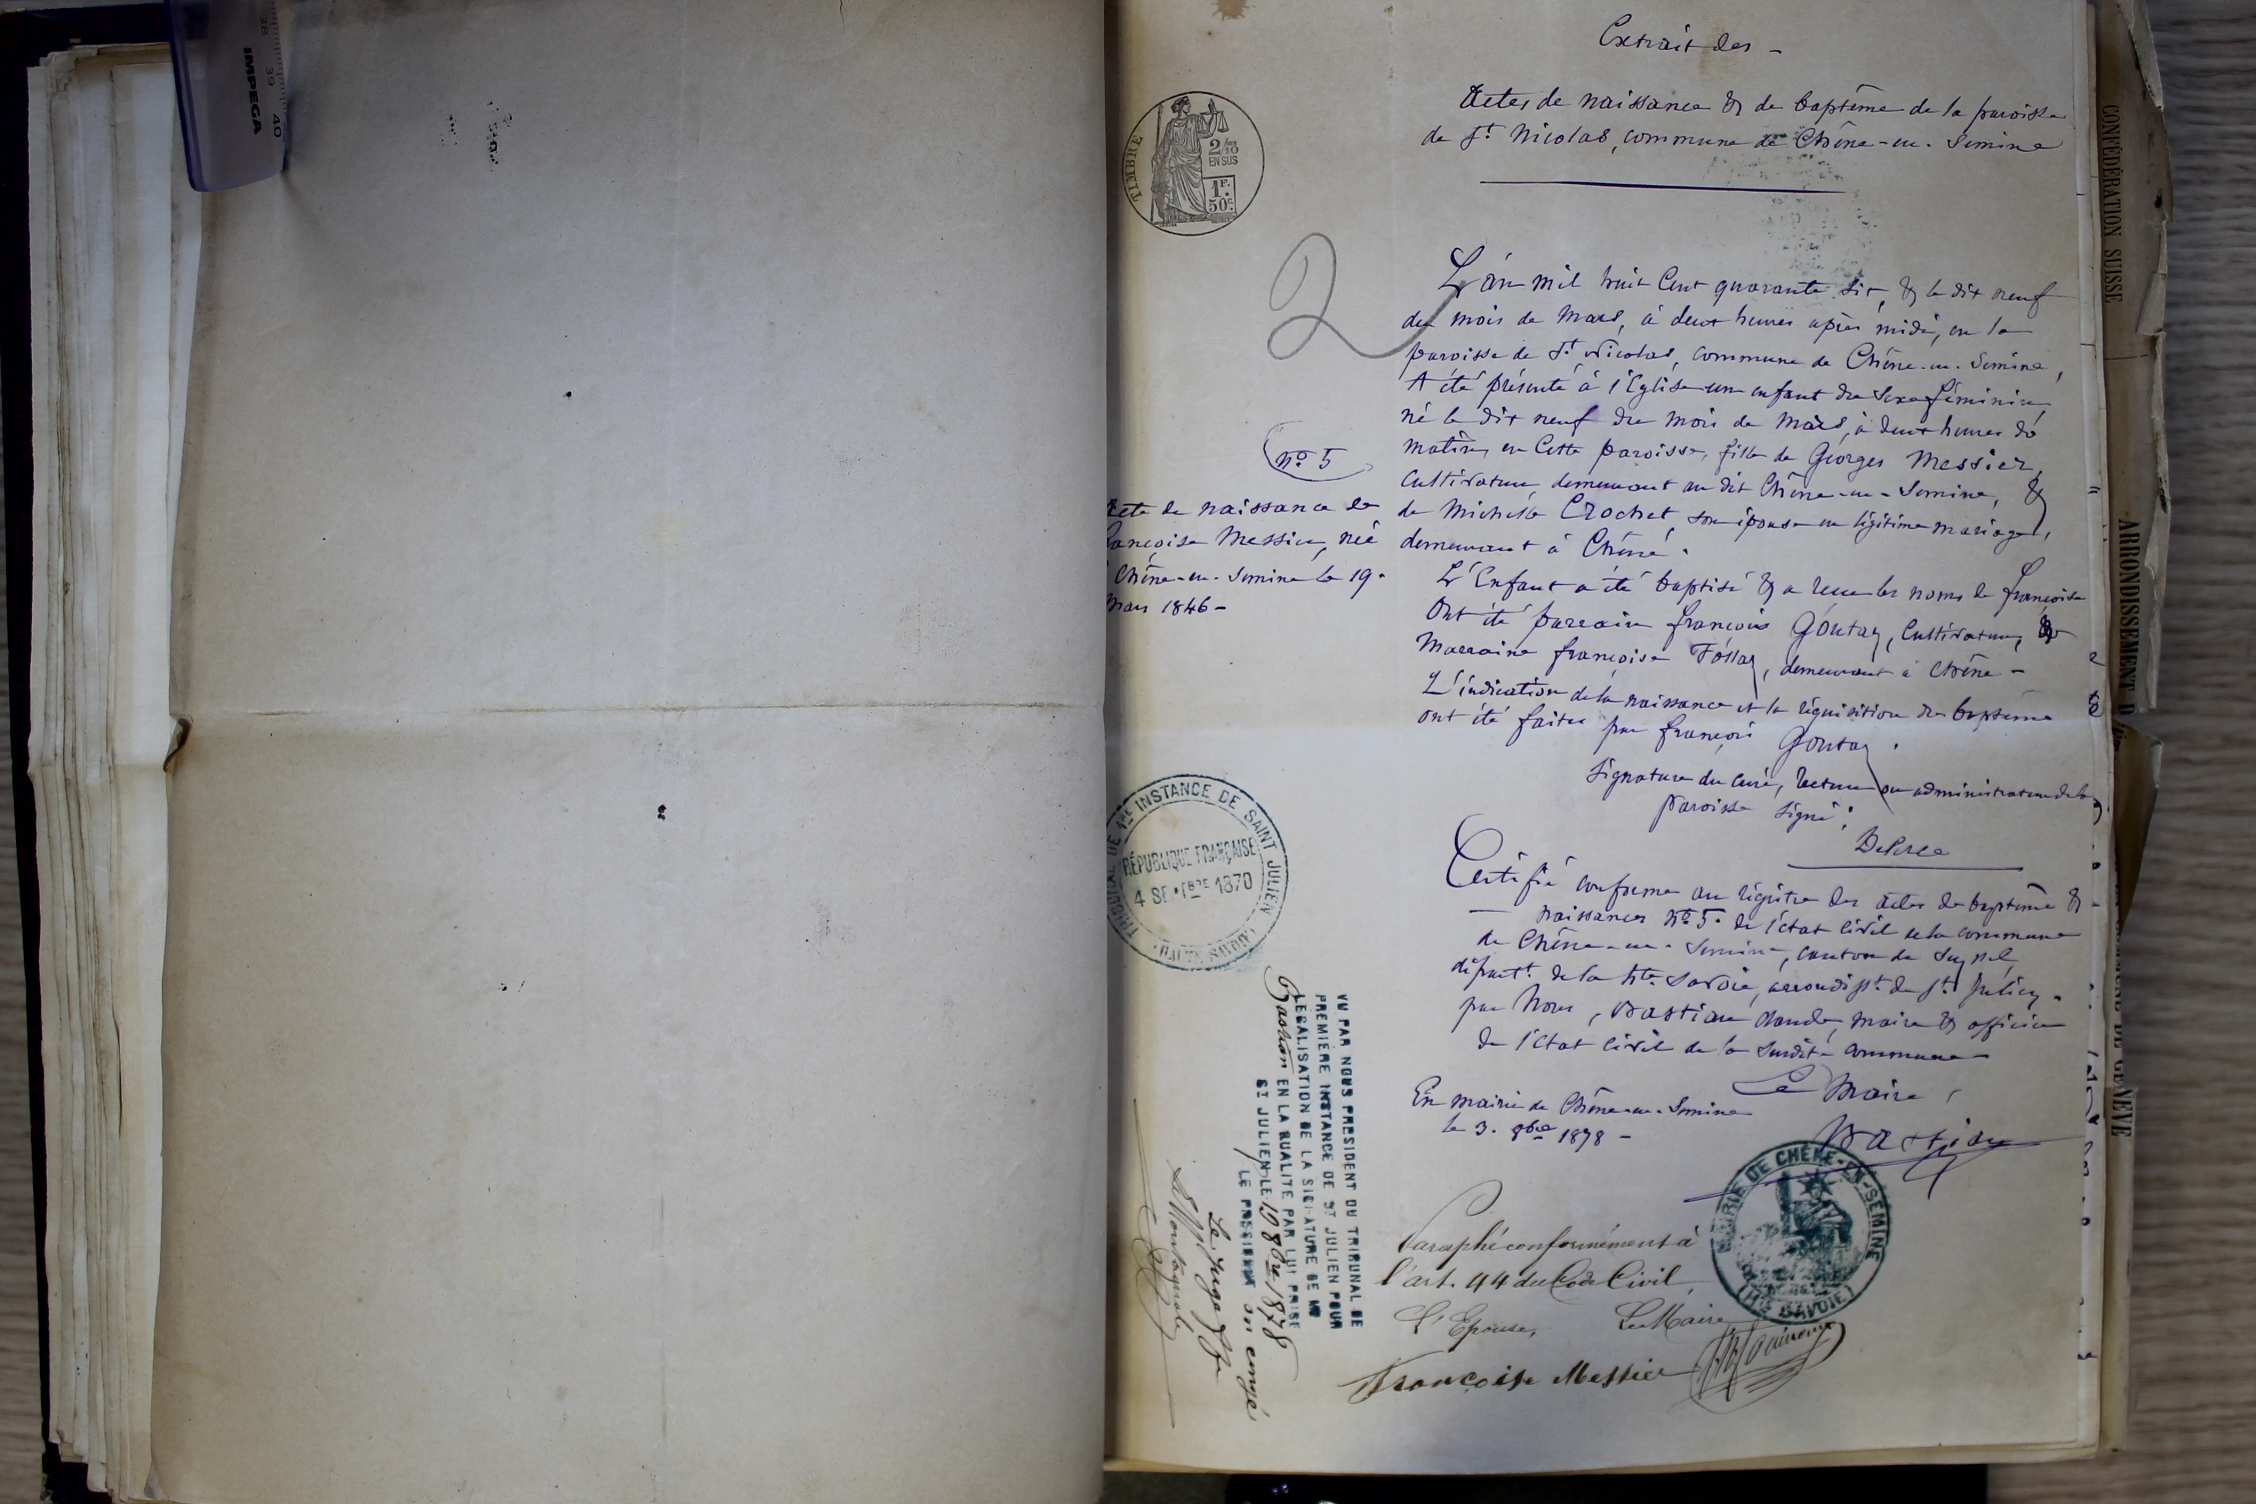 IMPEGA
38 39 40
Extrait des -
Actes de naissance & de baptême de la paroisse
de St Nicolas, commune de Chêne-en-Semine
TIMBRE
2/10
EN SUS
1F.
50c.
2
L'an mil huit Cent quarante six, & le dix neuf
du mois de Mars, à deux heures après midi, en la
paroisse de St Nicolas, commune de Chêne-en-Semine,
A été présenté à l'Eglise un enfant du sexe féminin,
né le dix neuf du mois de Mars, à deux heures du
matin, en Cette paroisse, fille de Georges Messier,
Cultivateur, demeurant au dit Chêne-en-Semine, &
de Michelle Crochet, son épouse en légitime mariage,
demeurant à Chêne.
No 5
Acte de naissance de
Françoise Messier, née
Chêne-en-Semine le 19
Mars 1846 -
L'Enfant a été baptisé & a reçu les noms de françoise
Ont été parrain françois Gontay, Cultivateur, &
Marraine françoise, demeurant à Chêne -
L'indication de la naissance et la réquisition du baptême
ont été faites par françois Gontay.
Signature du curé, recteur ou administrateur de la
paroisse signé:
Certifié conforme au régistre des actes de baptême &
naissances No 5. de l'état civil de la commune
de Chêne-en-Semine, canton de Seyssel
départt. de la Hte Savoie, arrondisst. de St Julien.
par Nous, Bastian Claude, maire & officier
de l'état civil de la susdite commune
Le Maire,
En mairie de Chêne-en-Semine
le 3. 8bre 1878 -
Bastian
MAIRIE DE CHÊNE-EN-SEMINE
(Hte SAVOIE)
TRIBUNAL DE 1RE INSTANCE DE SAINT JULIEN
RÉPUBLIQUE FRANÇAISE
4 SEPTBRE 1870
(HAUTE SAVOIE)
VU PAR NOUS PRESIDENT DU TRIBUNAL DE
PREMIERE INSTANCE DE ST JULIEN POUR
LEGALISATION DE LA SIGNATURE DE MR
Bastian EN LA QUALITE PAR LUI PRISE
ST JULIEN LE 19 8bre 1878
LE PRESIDENT en congé
Le juge ff
Paraphé conformément à
l'art. 44 du Code Civil,
L'Epouse, Le Maire
Françoise Messier
CONFÉDÉRATION SUISSE
ARRONDISSEMENT D
DE GENÈVE